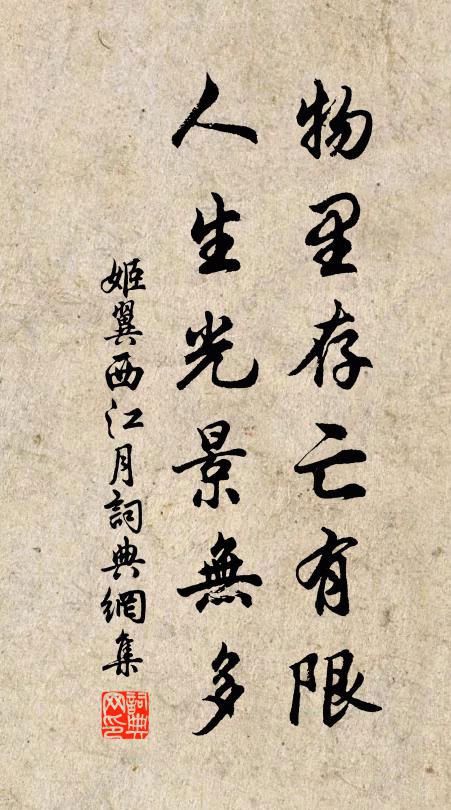 物里存亡有限
人生光景無多
姬翼西江月詞典網集
詞典网印